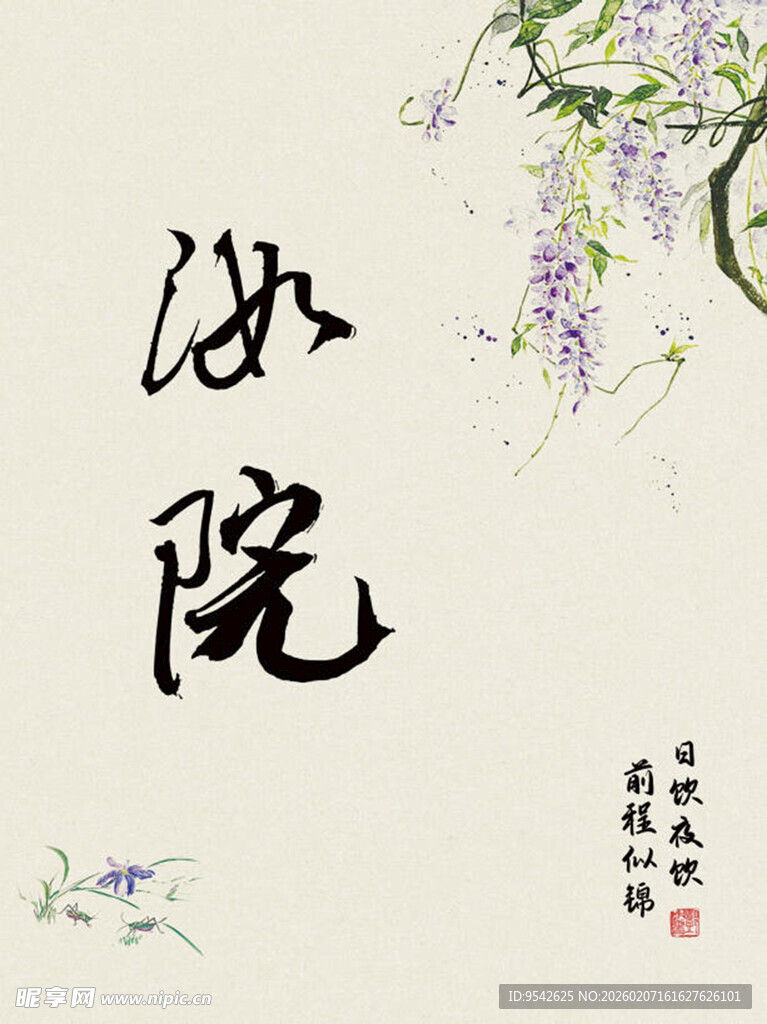 汝院
日饮夜饮
前程似锦
昵享网 www.nipic.cn
ID:9542625 NO:20260207161627626101